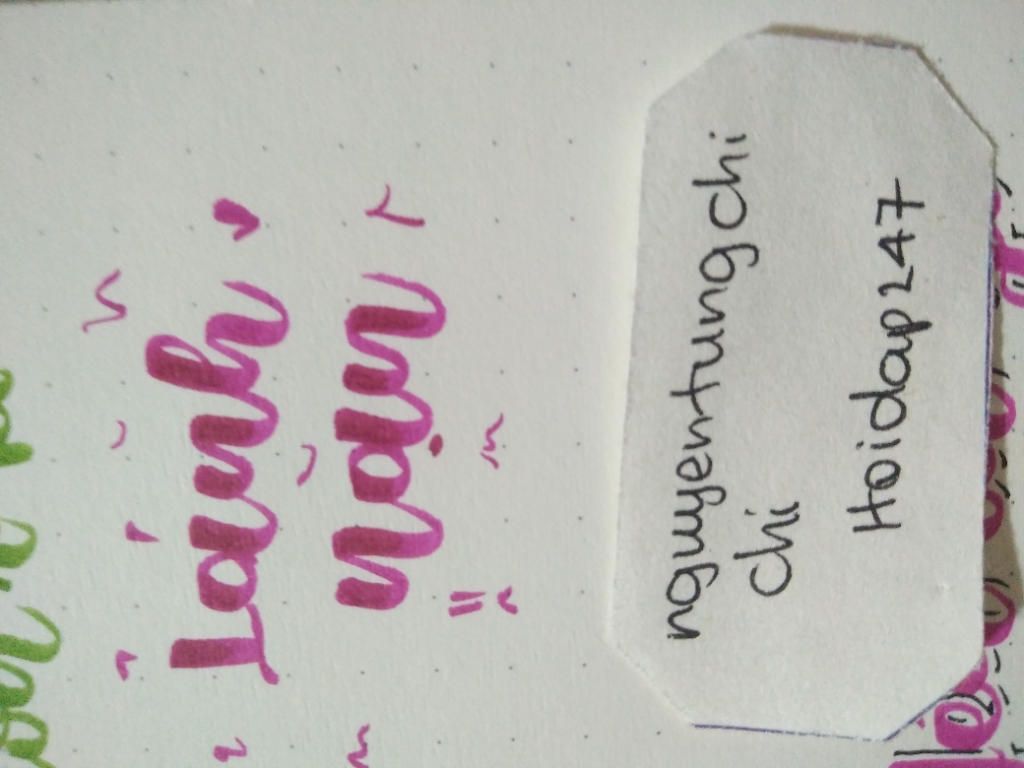 Lánh
nạn
nguyentungchi
chi
Hoidap247